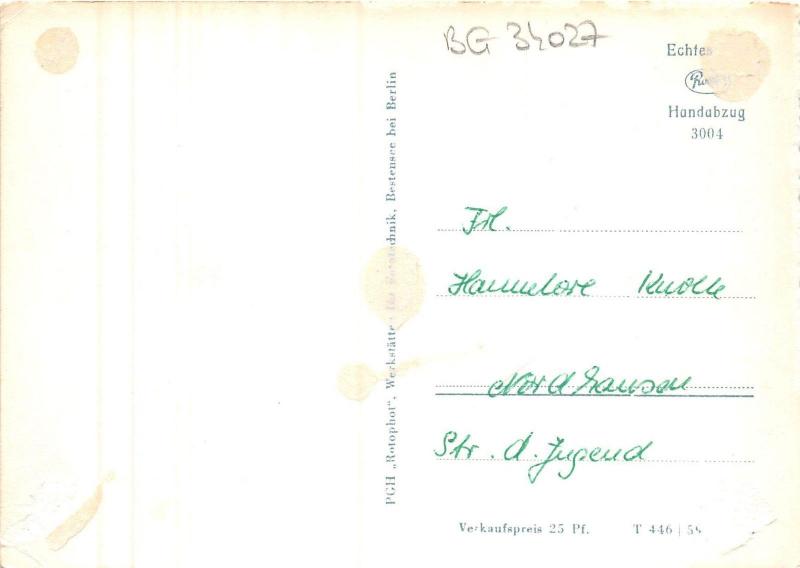 BG 34027
Echtes
Handabzug
3004
PGH „Rotophot", Werkstätte für Fototechnik, Bestensee bei Berlin
Frl.
Hannelore Knolle
Nordhausen
Str. d. Jugend
Verkaufspreis 25 Pf. T 446 | 58